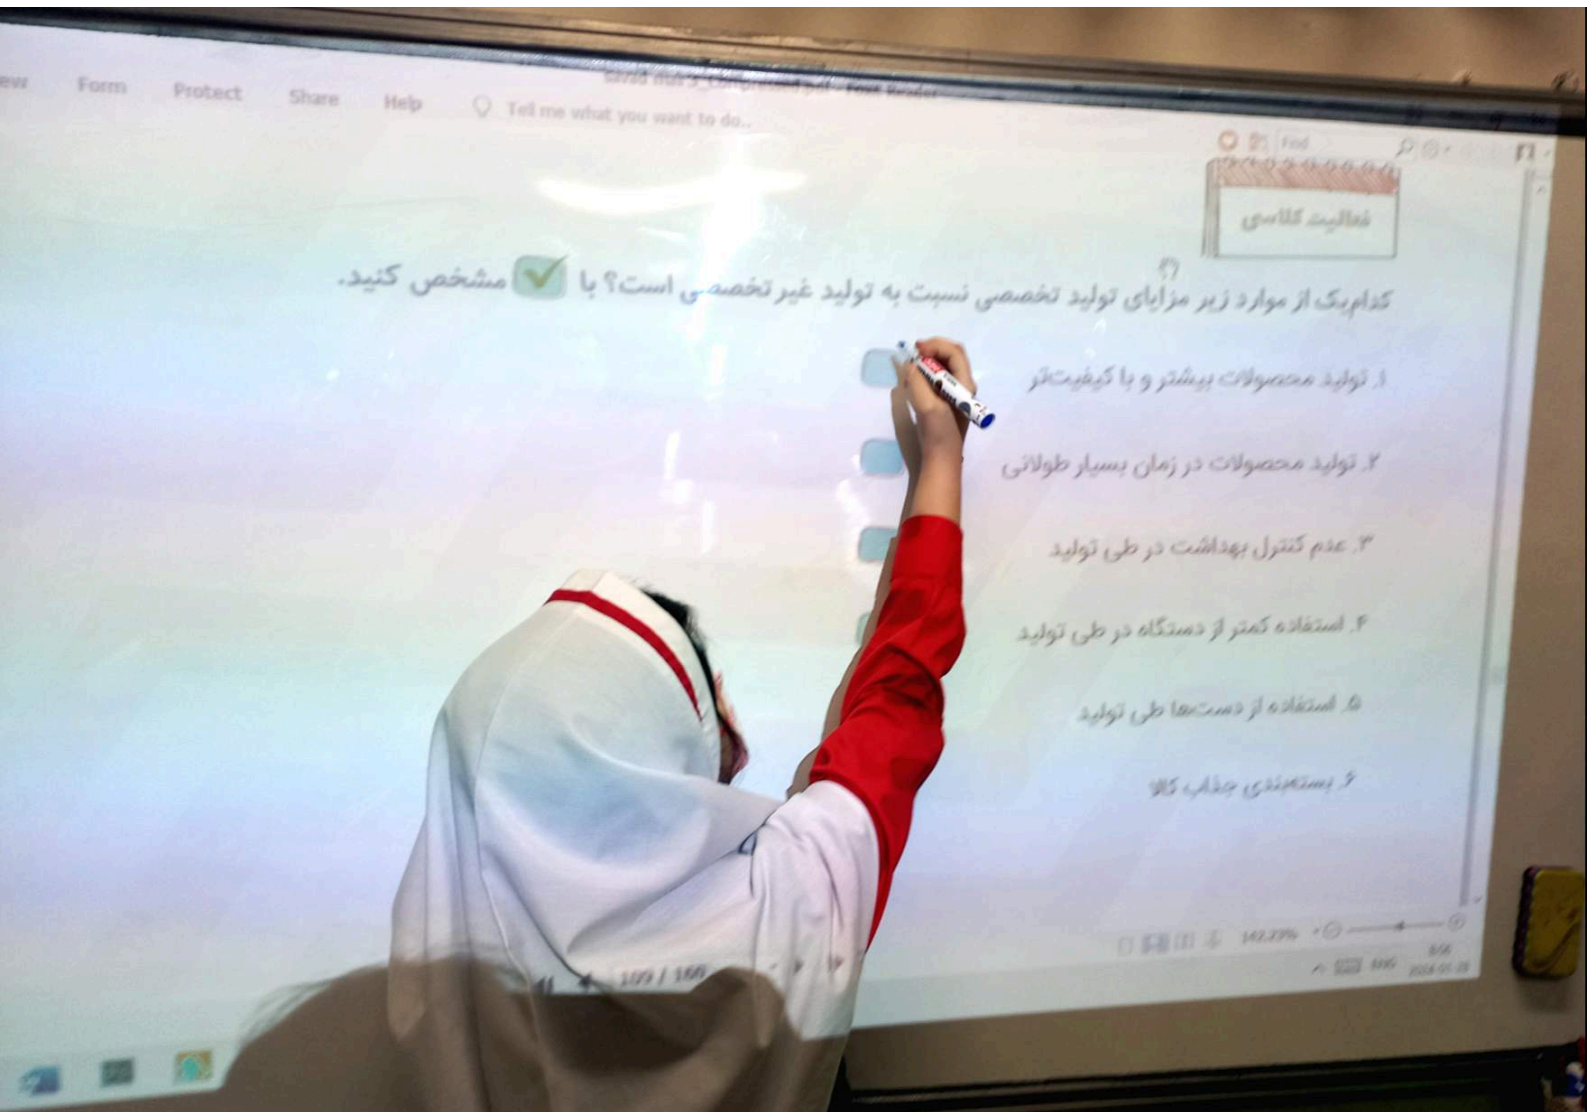 Form Protect Share Help Tell me what you want to do..
Find
فعالیت کلاسی
کدام‌یک از موارد زیر مزایای تولید تخصصی نسبت به تولید غیر تخصصی است؟ با مشخص کنید.
۱. تولید محصولات بیشتر و با کیفیت‌تر
۲. تولید محصولات در زمان بسیار طولانی
۳. عدم کنترل بهداشت در طی تولید
۴. استفاده کمتر از دستگاه در طی تولید
۵. استفاده از دست‌ها طی تولید
۶. بسته‌بندی جذاب کالا
109 / 160
ENG